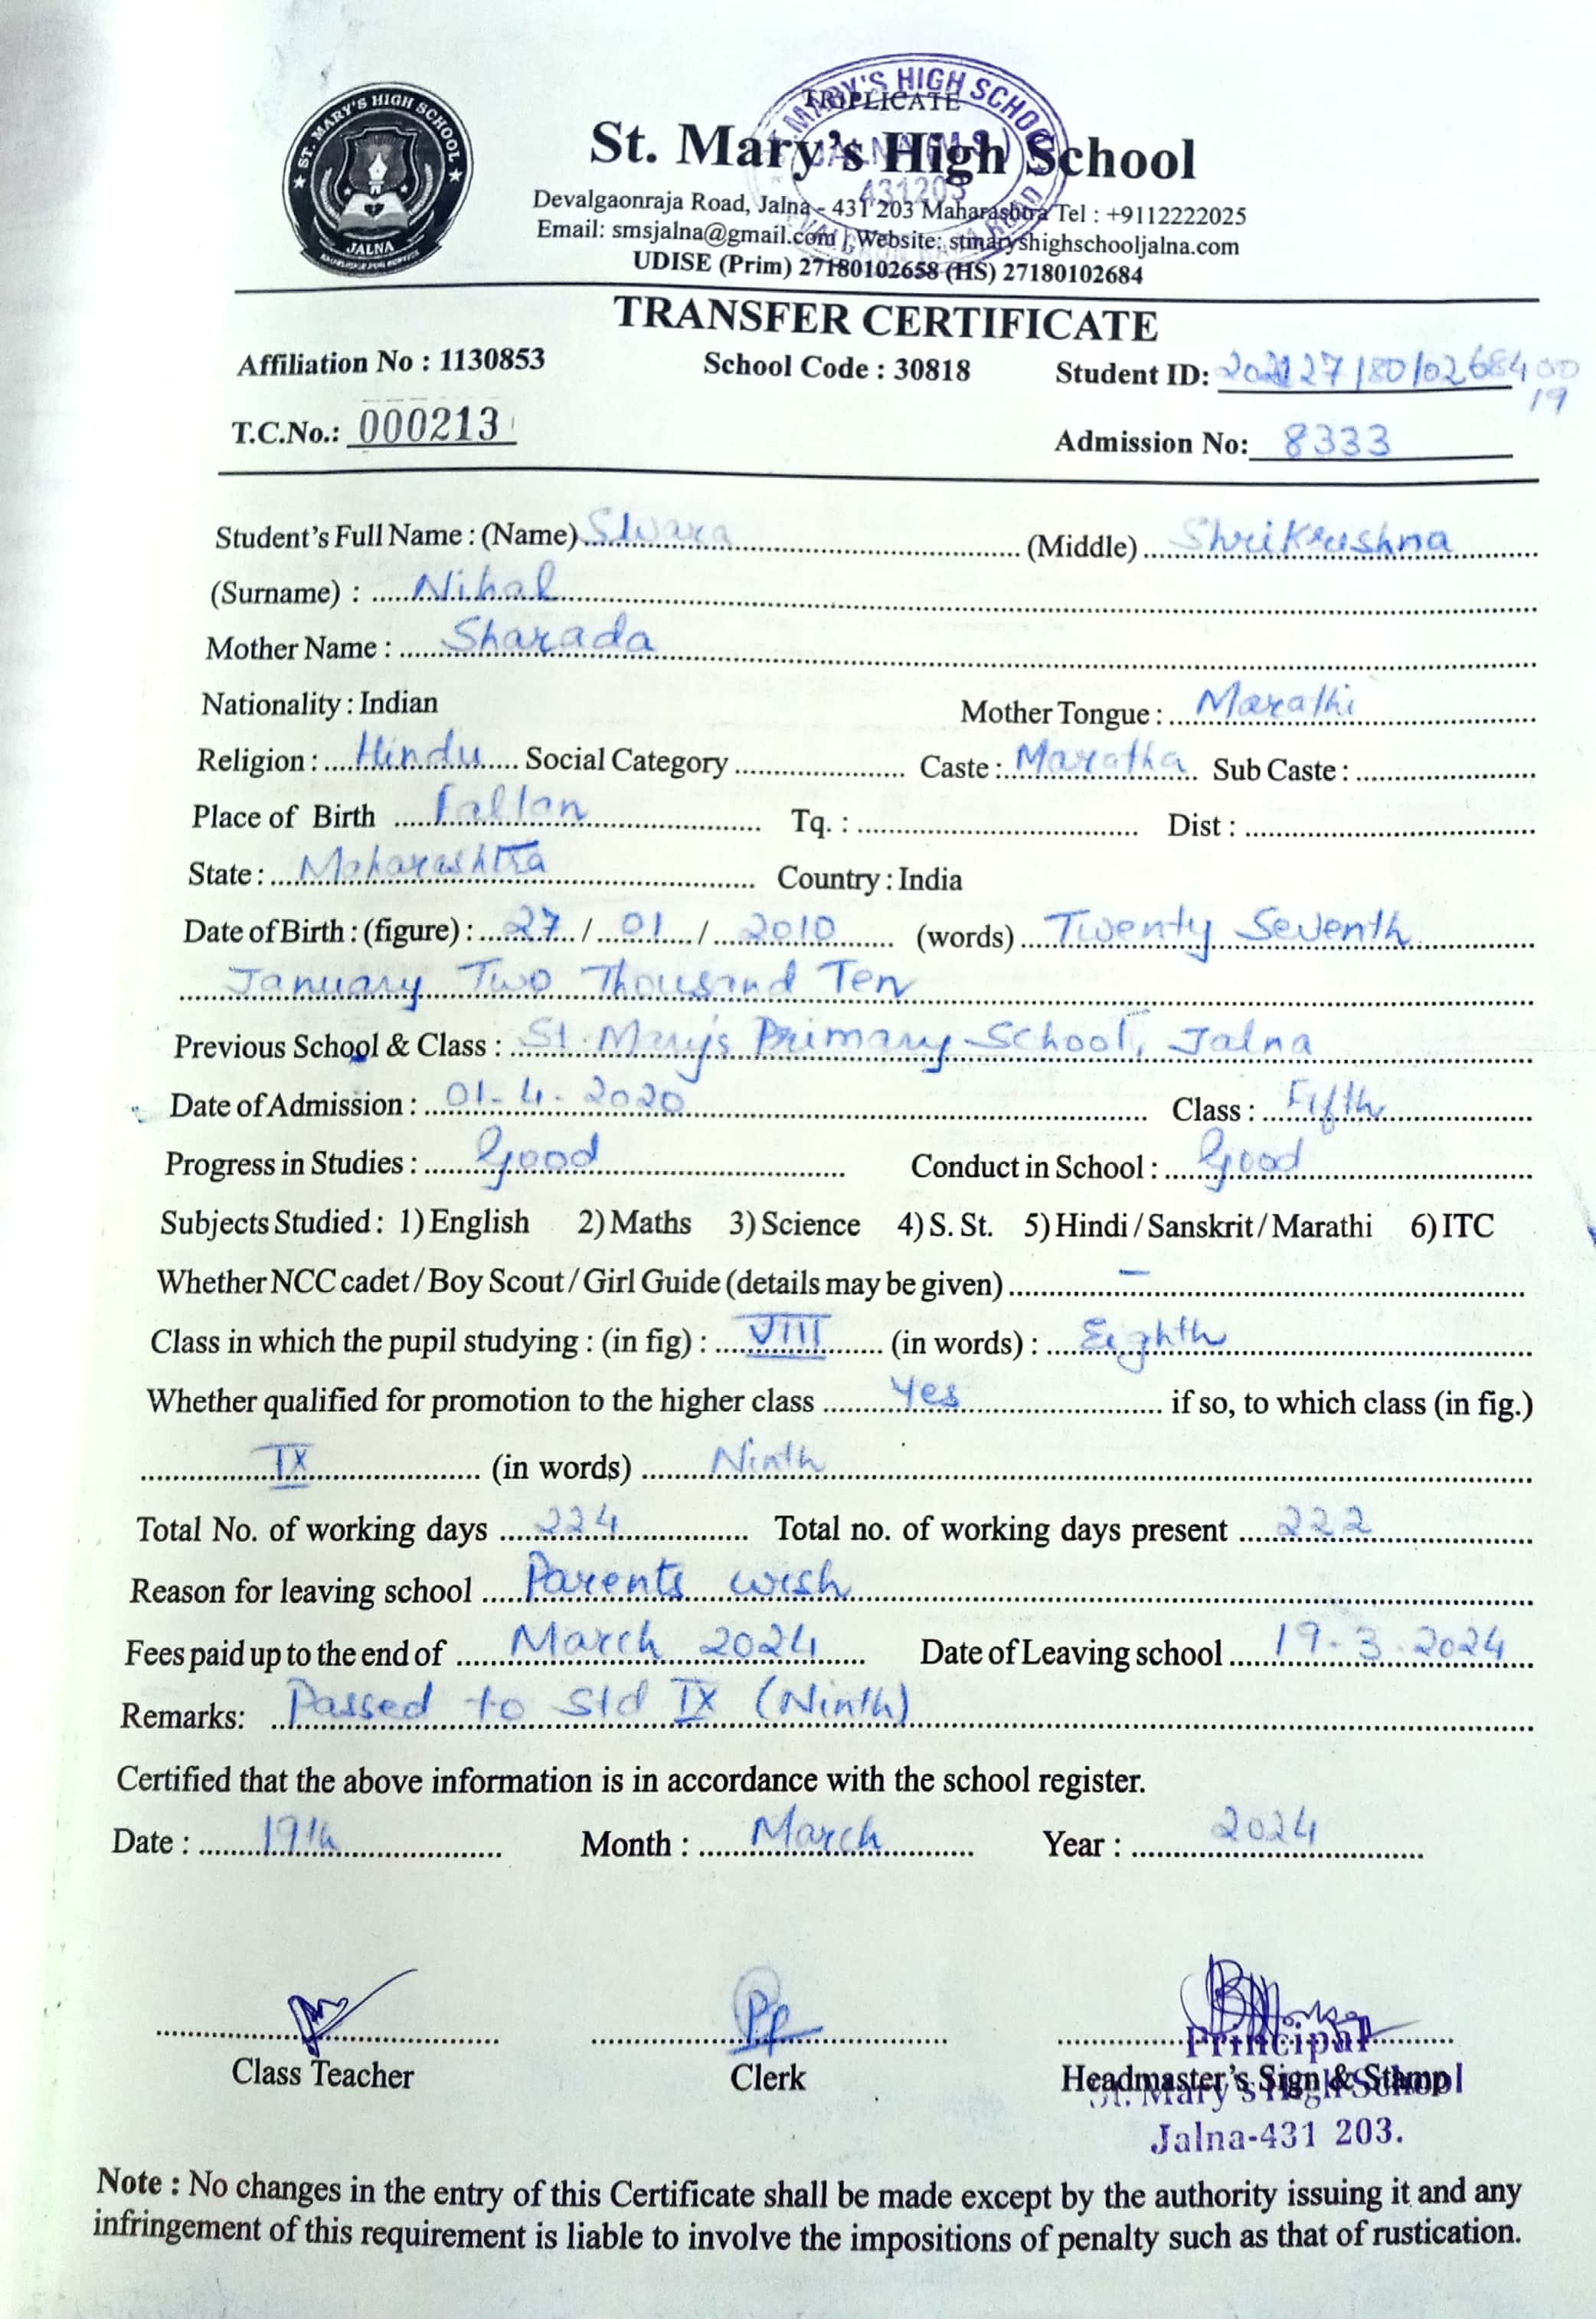 ST. MARY'S HIGH SCHOOL
JALNA
TRIPLICATE
St. Mary's High School
Devalgaonraja Road, Jalna - 431 203 Maharashtra Tel : +9112222025
Email: smsjalna@gmail.com | Website: stmaryshighschooljalna.com
UDISE (Prim) 27180102658 (HS) 27180102684
ST. MARY'S HIGH SCHOOL
431203
TRANSFER CERTIFICATE
Affiliation No : 1130853 School Code : 30818 Student ID:
19
T.C.No.: 000213 Admission No: 8333
Student's Full Name : (Name) Swara (Middle) Shrikrushna
(Surname) : Nihal
Mother Name : Sharada
Nationality : Indian Mother Tongue : Marathi
Religion : Hindu Social Category Caste : Maratha Sub Caste :
Place of Birth Tq. : Dist :
State : Maharashtra Country : India
Date of Birth : (figure) : 27 / 01 / 2010 (words) Twenty Seventh
January Two Thousand Ten
Previous School & Class : St. Mary's Primary School, Jalna
Date of Admission : 01-4-2020 Class : Fifth
Progress in Studies : Good Conduct in School : Good
Subjects Studied : 1) English 2) Maths 3) Science 4) S. St. 5) Hindi / Sanskrit / Marathi 6) ITC
Whether NCC cadet / Boy Scout / Girl Guide (details may be given) –
Class in which the pupil studying : (in fig) : VIII (in words) : Eighth
Whether qualified for promotion to the higher class Yes if so, to which class (in fig.)
IX (in words) Ninth
Total No. of working days 224 Total no. of working days present 222
Reason for leaving school Parents wish
Fees paid up to the end of March 2024 Date of Leaving school 19-3-2024
Remarks: Passed to Std IX (Ninth)
Certified that the above information is in accordance with the school register.
Date : 19th Month : March Year : 2024
Class Teacher Clerk Headmaster's Sign & Stamp
Principal
St. Mary's High School
Jalna-431 203.
Note : No changes in the entry of this Certificate shall be made except by the authority issuing it and any
infringement of this requirement is liable to involve the impositions of penalty such as that of rustication.